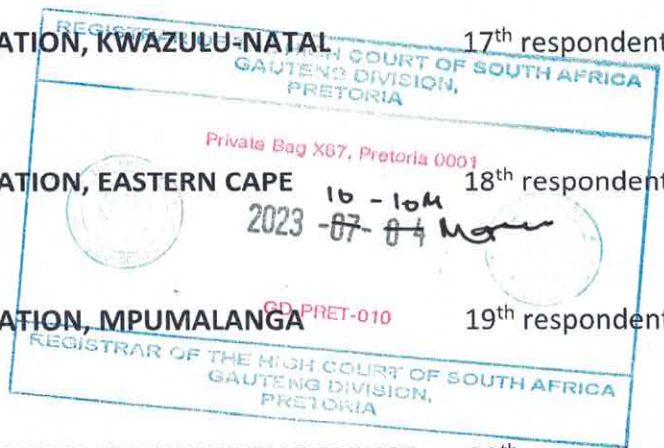 ATION, KWAZULU-NATAL 17th respondent
REGISTRAR OF THE HIGH COURT OF SOUTH AFRICA
GAUTENG DIVISION,
PRETORIA
Private Bag X67, Pretoria 0001
ATION, EASTERN CAPE 18th respondent
2023 -07- 04
GD-PRET-010
ATION, MPUMALANGA 19th respondent
REGISTRAR OF THE HIGH COURT OF SOUTH AFRICA
GAUTENG DIVISION,
PRETORIA